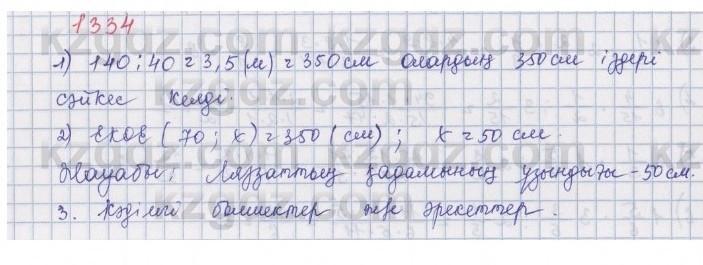 1334
1) 140 : 40 = 3,5 (м) = 350 см олардың 350 см іздері
сәйкес келді.
2) ЕКОЕ (70 ; х) = 350 (см) ; х = 50 см.
Жауабы: Ляззаттың қадамының ұзындығы - 50 см.
3. Кәдімгі бөлшектер және әрекеттер.
kzgdz.com kzgdz.com kz
kzgdz.com
kzgdz.com kzgdz.com kz
kzgdz.com